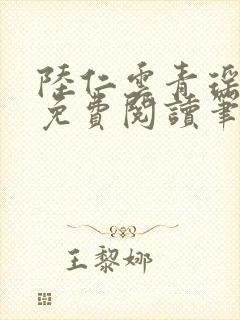 陸仁雲青瑶
免費閱讀筆
王黎娜